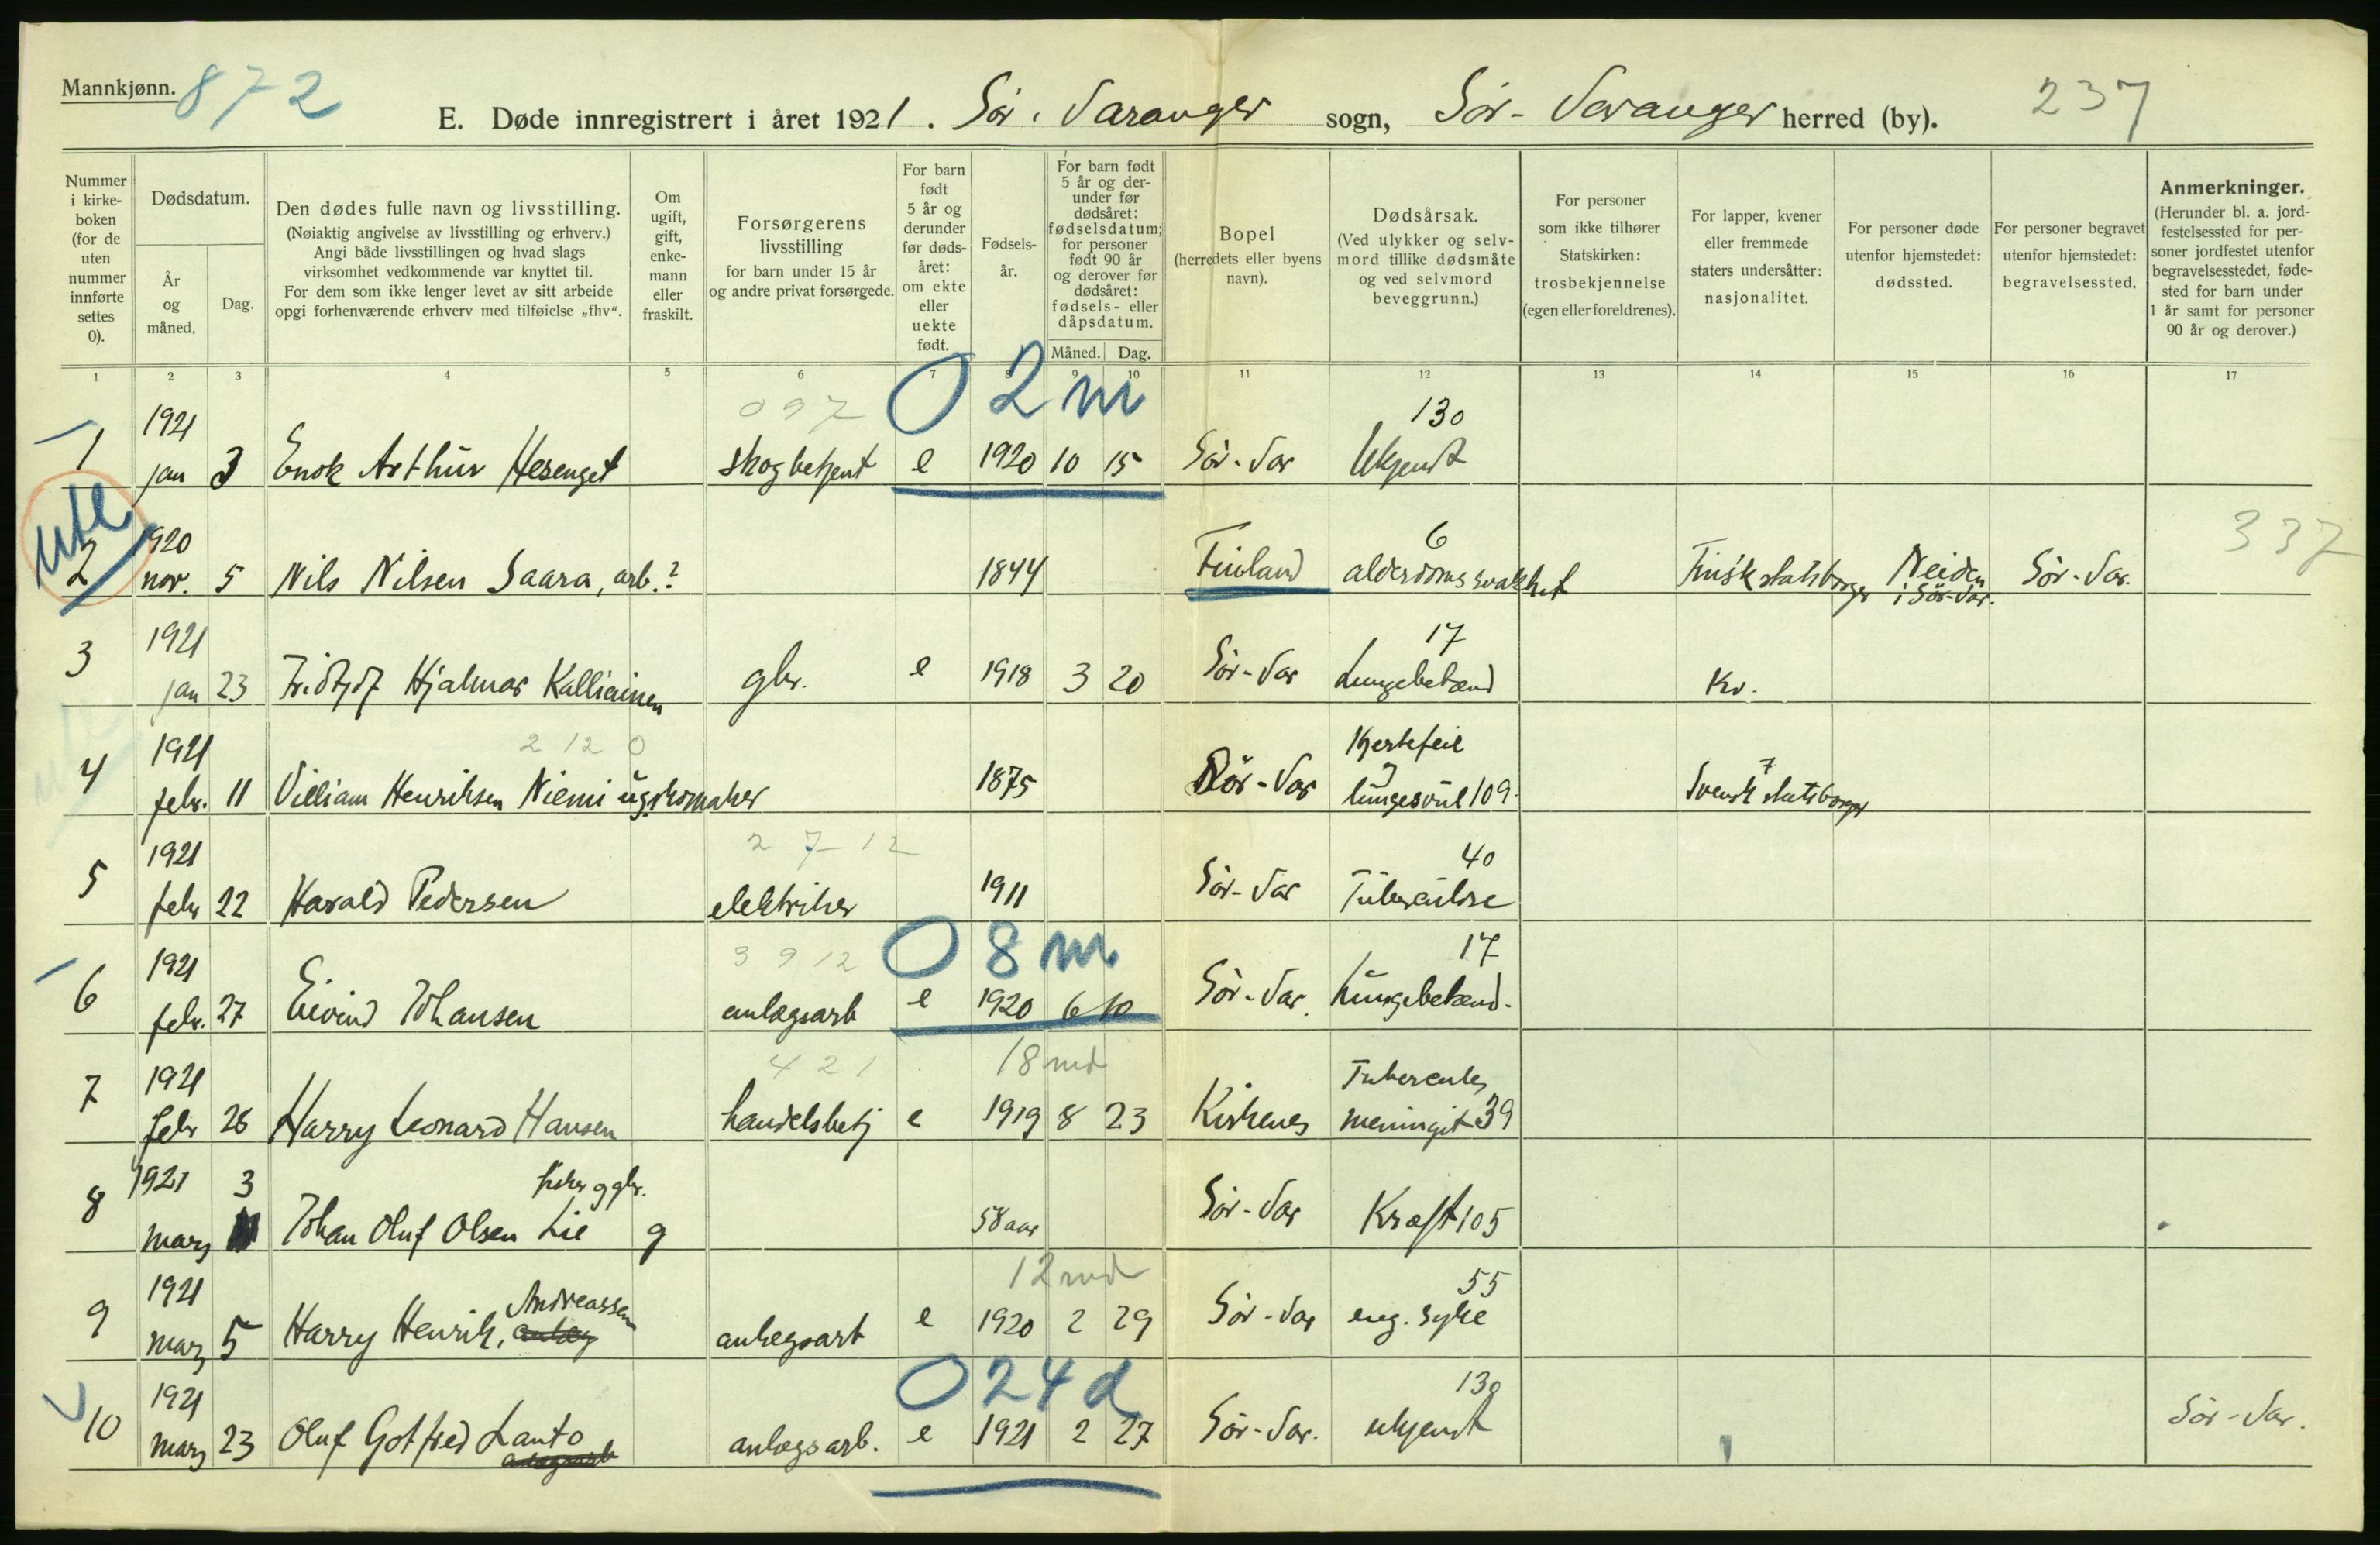 Mannkjønn. 872
E. Døde innregistrert i året 1921. Sør-Varanger sogn, Sør-Varanger herred (by). 237
Nummer i kirke- boken (for de uten nummer innførte settes 0).
Dødsdatum.
År og måned.
Dag.
Den dødes fulle navn og livsstilling.
(Nøiaktig angivelse av livsstilling og erhverv.)
Angi både livsstillingen og hvad slags
virksomhet vedkommende var knyttet til.
For dem som ikke lenger levet av sitt arbeide
opgi forhenværende erhverv med tilføielse „fhv“.
Om ugift, gift, enke- mann eller fraskilt.
Forsørgerens livsstilling
for barn under 15 år
og andre privat forsørgede.
For barn født 5 år og derunder før døds- året: om ekte eller uekte født.
Fødsels- år.
For barn født 5 år og der- under før dødsåret: fødselsdatum; for personer født 90 år og derover før dødsåret: fødsels- eller dåpsdatum.
Måned. Dag.
Bopel
(herredets eller byens navn).
Dødsårsak.
(Ved ulykker og selv-
mord tillike dødsmåte
og ved selvmord
beveggrunn.)
For personer som ikke tilhører Statskirken: trosbekjennelse (egen eller foreldrenes).
For lapper, kvener eller fremmede staters undersåtter: nasjonalitet.
For personer døde utenfor hjemstedet: dødssted.
For personer begravet utenfor hjemstedet: begravelsessted.
Anmerkninger.
(Herunder bl. a. jord-
festelsessted for per-
soner jordfestet utenfor
begravelsesstedet, føde-
sted for barn under
1 år samt for personer
90 år og derover.)
1 2 3 4 5 6 7 8 9 10 11 12 13 14 15 16 17
1921 097 0 2 m 130
1 jan 3 Enok Arthur Hesenget skogbetjent e 1920 10 15 Sør-Var Ukjendt
utl 1920 6 337
2 nov. 5 Nils Nilsen Saara, arb.? 1844 Finland alderdomssvakhet Finsk statsborger Neiden i Sør-Var. Sør-Var.
1921 17
3 jan 23 Fridtjof Hjalmar Kalliainen gbr. e 1918 3 20 Sør-Var Lungebetænd Kv.
1921 2 12 0 Hjertefeil 7
4 febr. 11 Villiam Henriksen Niemi ug. skomaker 1875 Sør-Var lungesvul 109. Svensk statsborger
1921 2 7 12 40
5 febr 22 Harald Pedersen elektriker 1911 Sør-Var Tuberculose
1921 3 9 12 0 8 m 17
6 febr. 27 Eivind Johansen anlægsarb e 1920 6 10 Sør-Var. Lungebetænd.
1921 4 2 1 18 md Tubercules
7 febr 28 Harry Leonard Hansen handelsbetj e 1919 8 23 Kirkenes meningit 39
1921 3 fisker og gbr.
8 mars Johan Oluf Olsen Lie g 58 aar Sør-Var Kræft 105
1921 Andreassen 12 md 55
9 mars 5 Harry Henrik, anlæg anlægsarb e 1920 2 29 Sør-Var eng. syke
1921 0 24 d 130
10 mars 23 Oluf Gotfred Lanto anlægsarb. e 1921 2 27 Sør-Var. ukjendt Sør-Var.
anlægsarb